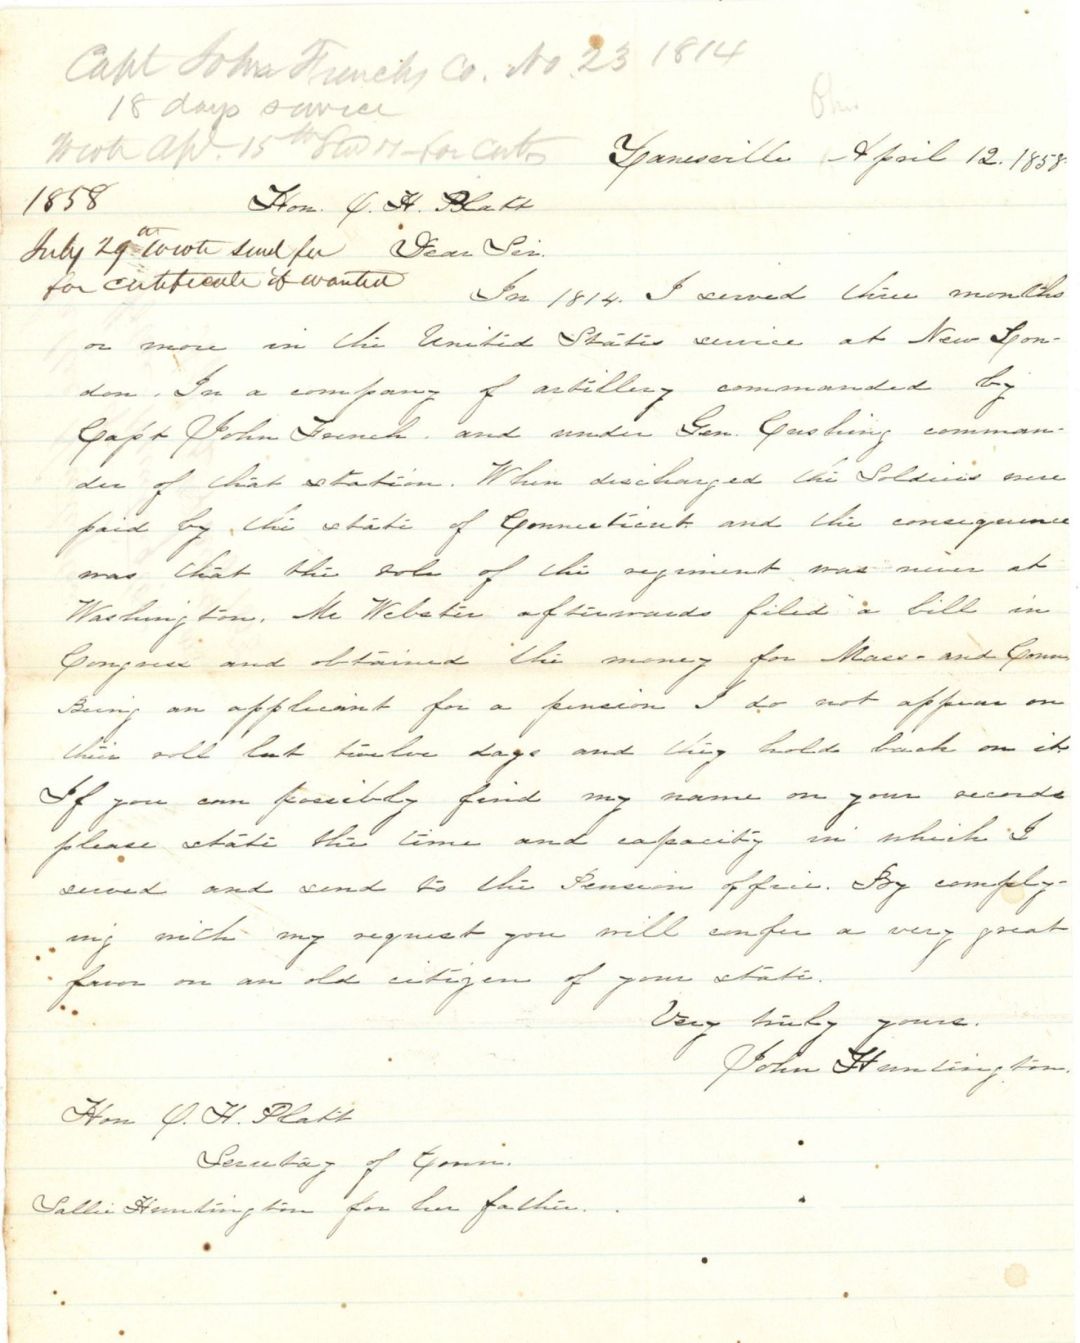 Capt John Frenchs Co. No. 23 1814
18 days service
Ohio
Wrote Apl. 15th for
Zanesville April 12. 1858
1858
Hon. O. H. Platt
July 29th wrote send fee
Dear Sir.
for certificate if wanted
In 1814. I served three months
or more in the United States service at New Lon-
don. In a company of artillery commanded by
Capt John French. and under Gen. Cushing comman-
der of that station. When discharged the Soldiers were
paid by the state of Connecticut and the consequence
was that the role of the regiment was never at
Washington. Mr Webster afterwards filed a bill in
Congress and obtained the money for Mass- and Conn
Being an applicant for a pension I do not appear on
their roll but twelve days and they hold back on it
If you can possibly find my name on your records
please state the time and capacity in which I
served and send to the Pension office. By comply-
ing with my request you will confer a very great
favor on an old citizen of your state.
Very truly yours.
John Huntington.
Hon O. H. Platt
Secretary of Conn.
Sallie Huntington for her father.